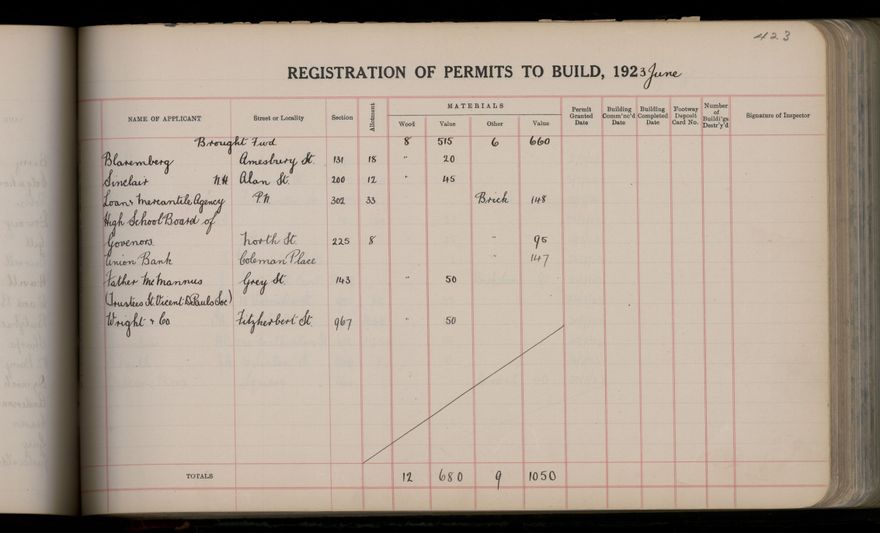 423
REGISTRATION OF PERMITS TO BUILD, 1923 June
NAME OF APPLICANT Street or Locality Section Allotment MATERIALS Wood Value Other Value Permit Granted Date Building Comm'nc'd Date Building Completed Date Footway Deposit Card No. Number of Buildi'gs Destr'y'd Signature of Inspector
Brought Fwd 8 515 6 660
Blaremberg Amesbury St. 131 18 " 20
Sinclair N.H Alan St. 200 12 " 45
Loan & Mercantile Agency P.N. 302 33 Brick 148
High School Board of
Govenors North St. 225 8 " 95
Union Bank Coleman Place " 147
Father McMannus Grey St. 143 " 50
(Trustees St. Vicent DePauls Soc)
Wright & Co Fitzherbert St. 967 " 50
TOTALS 12 680 9 1050